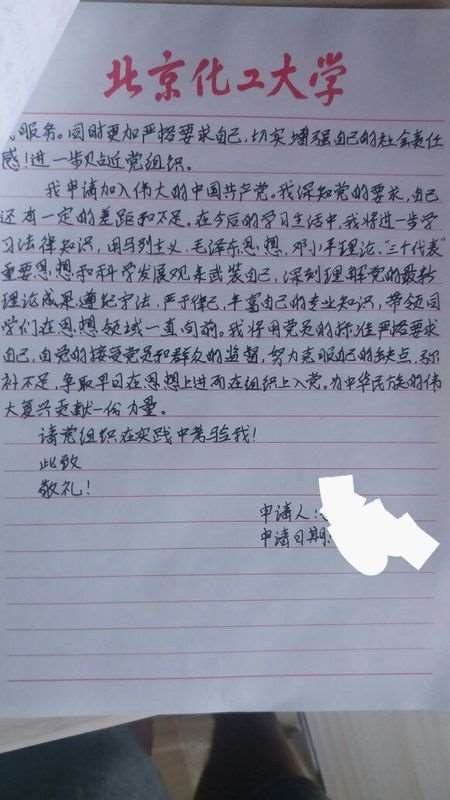 北京化工大学
服务。同时更加严格要求自己,切实增强自己的社会责任
感!进一步贴近党组织。
我申请加入伟大的中国共产党。我深知党的要求,自己
还有一定的差距和不足。在今后的学习生活中,我将进一步学
习法律知识,用马列主义、毛泽东思想、邓小平理论、“三个代表”
重要思想和科学发展观来武装自己,深刻理解党的最新
理论成果遵纪守法,严于律己,丰富自己的专业知识,带领同
学们在思想领域一直向前。我将用党员的标准严格要求
自己,自觉的接受党员和群众的监督,努力克服自己的缺点,弥
补不足,争取早日在思想上进而在组织上入党。为中华民族的伟
大复兴贡献一份力量。
请党组织在实践中考验我!
此致
敬礼!
申请人:
申请日期: